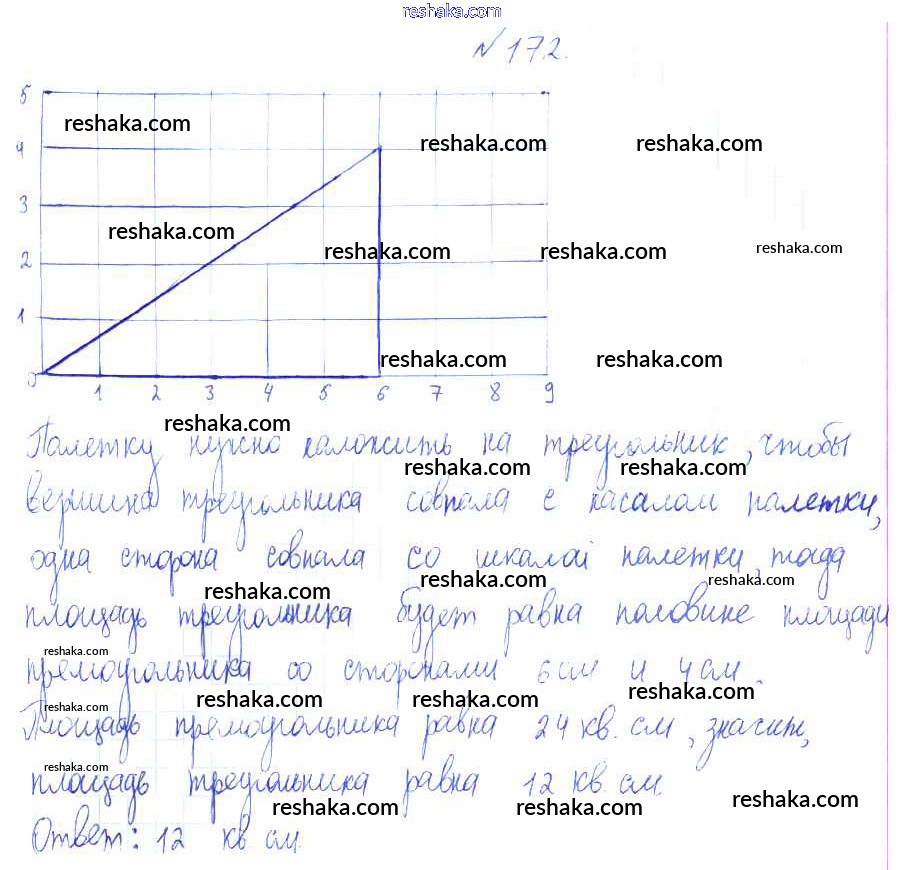 reshaka.com
№ 172.
5
reshaka.com
4
reshaka.com reshaka.com
3
reshaka.com
reshaka.com reshaka.com reshaka.com
2
1
reshaka.com reshaka.com
0 1 2 3 4 5 6 7 8 9
reshaka.com
Палетку нужно наложить на треугольник, чтобы
reshaka.com reshaka.com
вершина треугольника совпала с началом палетки,
одна сторона совпала со шкалой палетки, тогда
reshaka.com reshaka.com reshaka.com
площадь треугольника будет равна половине площади
reshaka.com
прямоугольника со сторонами 6 см и 4 см.
reshaka.com reshaka.com reshaka.com
reshaka.com
Площадь прямоугольника равна 24 кв. см, значит,
reshaka.com
площадь треугольника равна 12 кв. см.
reshaka.com reshaka.com reshaka.com
Ответ: 12 кв. см.